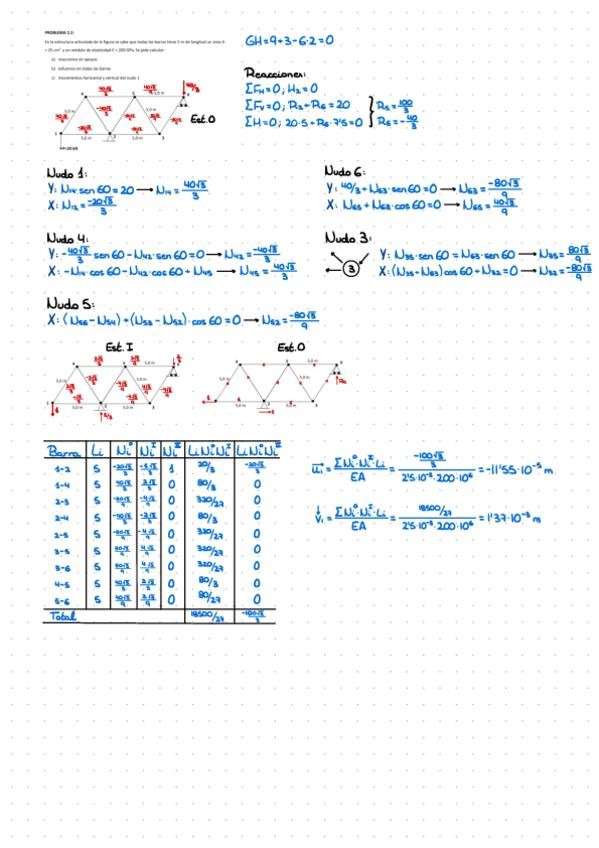 PROBLEMA 2.2.
En la estructura articulada de la figura se sabe que todas las barras tiene 5 m de longitud un área A
= 25 cm² y un módulo de elasticidad E = 200 GPa. Se pide calcular:
a) reacciones en apoyos
b) esfuerzos en todas las barras
c) movimientos horizontal y vertical del nudo 1
GH=9+3-6·2=0
Reacciones:
ΣF_H=0; H₂=0
ΣF_V=0; R₂+R₆=20
ΣH=0; 20·5+R₆·7'5=0
R₂=100/3
R₆=-40/3
Est.0
Nudo 1:
Y: N₁₄·sen60=20 → N₁₄=40√3/3
X: N₁₂=-20√3/3
Nudo 6:
Y: 40/3+N₆₃·sen60=0 → N₆₃=-80√3/9
X: N₆₅+N₆₃·cos60=0 → N₆₅=40√3/9
Nudo 4:
Y: -40√3/3 sen60-N₄₂·sen60=0 → N₄₂=-40√3/3
X: -N₁₄·cos60-N₄₂·cos60+N₄₅ → N₄₅=40√3/3
Nudo 3:
3
Y: N₃₅·sen60=N₆₃·sen60 → N₃₅=80√3/9
X:(N₃₅+N₆₃)cos60+N₃₂=0 → N₃₂=-80√3/9
Nudo 5:
X:(N₅₆-N₅₄)+(N₅₃-N₅₂)·cos60=0 → N₅₂=-80√3/9
Est. I
Est.0
Barra Li Ni⁰ Niᴵ Niᴵᴵ LiNi⁰Niᴵ LiNi⁰Niᴵᴵ
1-2 5 -20√3/3 -√3/3 1 20/3 -20√3/3
1-4 5 40√3/3 2√3/3 0 80/3 0
2-3 5 -80√3/9 -4√3/9 0 320/27 0
2-4 5 -40√3/3 -2√3/3 0 80/3 0
2-5 5 -80√3/9 -4√3/9 0 320/27 0
3-5 5 80√3/9 4√3/9 0 320/27 0
3-6 5 80√3/9 4√3/9 0 320/27 0
4-5 5 40√3/3 2√3/3 0 80/3 0
5-6 5 40√3/9 2√3/9 0 80/27 0
Total 18500/27 -100√3/3
u₁=ΣNi⁰·Niᴵ·Li/EA=-100√3/3/2'5·10⁻³·200·10⁶=-11'55·10⁻⁵ m
v₁=ΣNi⁰·Niᴵ·Li/EA=18500/27/2'5·10⁻³·200·10⁶=1'37·10⁻³ m